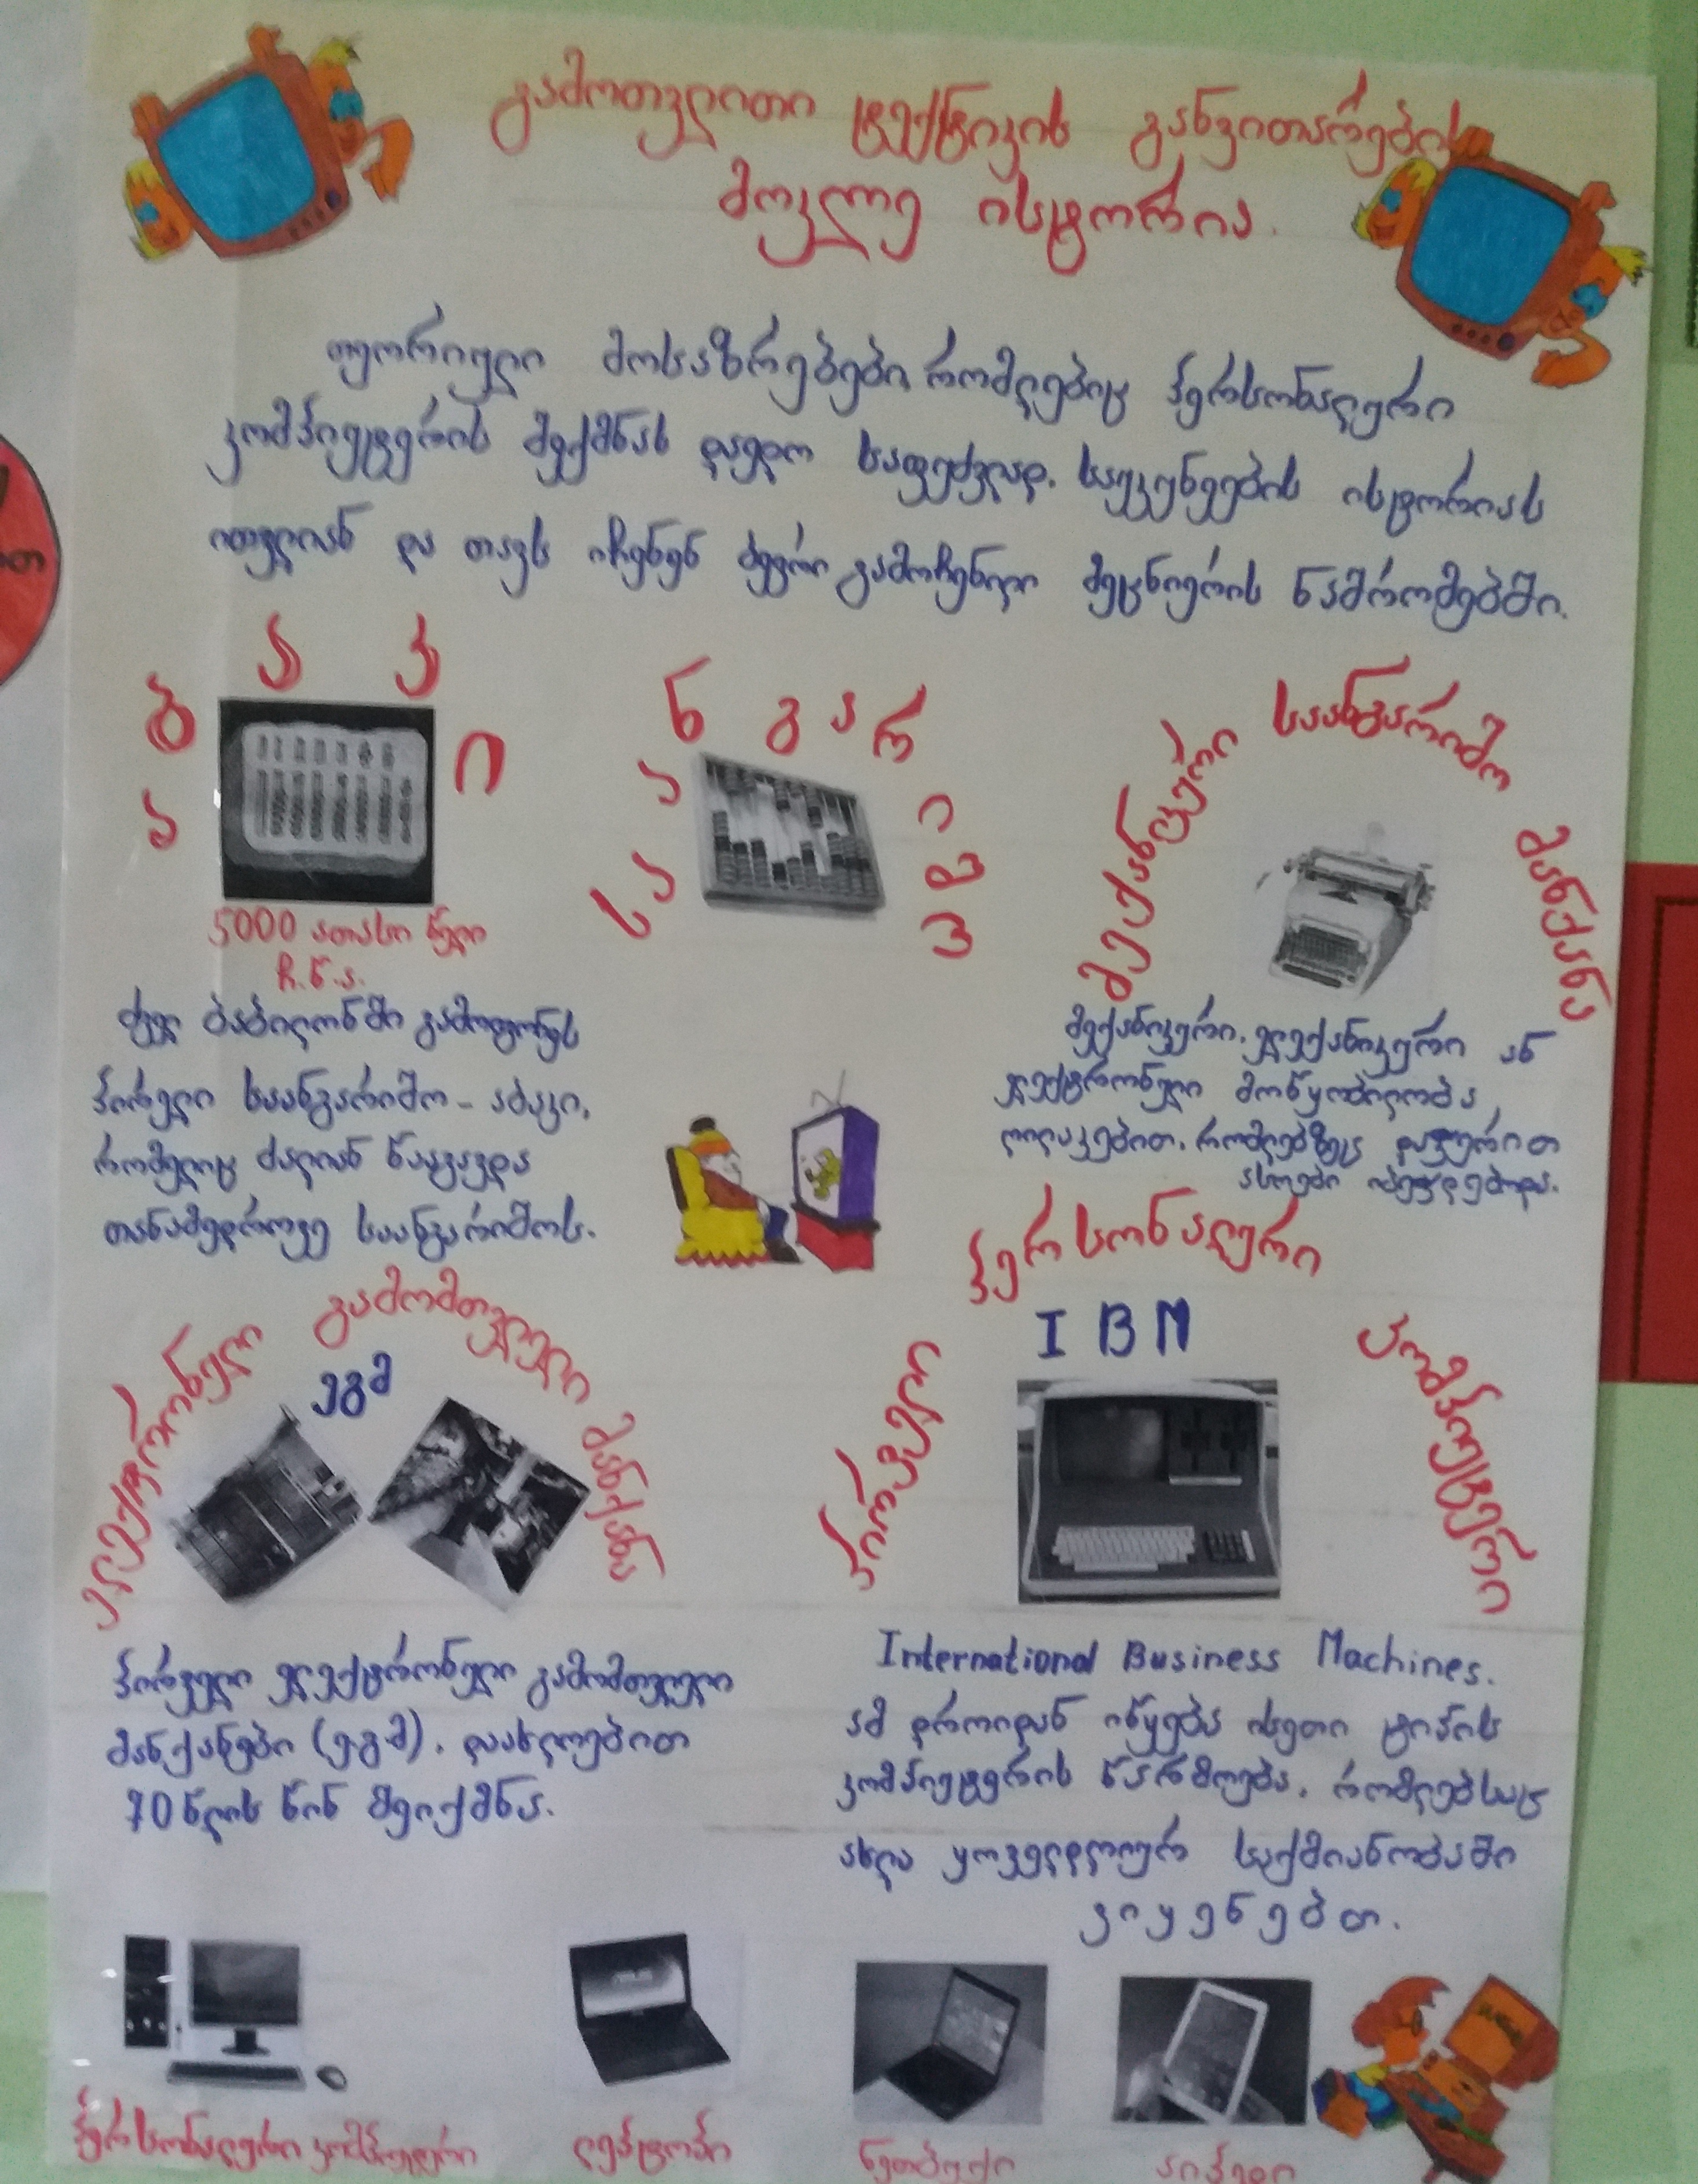 გამოთვლითი ტექნიკის განვითარების
მოკლე ისტორია.
თეორიული მოსაზრებები, რომლებიც პერსონალური
კომპიუტერის შექმნას დაედო საფუძვლად, საუკუნეების ისტორიას
ითვლიან და თავს იჩენენ ბევრი გამოჩენილი მეცნიერის ნაშრომებში.
აბაკი
5000 ათასი წელი
ჩ.წ.ა.
ძველ ბაბილონში გამოიგონეს
პირველი საანგარიშო - აბაკი,
რომელიც ძალიან წააგავდა
თანამედროვე საანგარიშოს.
საანგარიშო
მექანიკური საანგარიშო მანქანა
მექანიკური, ელექანიკური ან
ელექტრონული მოწყობილობა,
ღილაკებით, რომლებზეც დაჭერით
ასოები იბეჭდებოდა.
ელექტრონული გამომთვლელი მანქანა
ეგმ
პირველი ელექტრონული გამომთვლელი
მანქანები (ეგმ), დაახლოებით
70 წლის წინ შეიქმნა.
პირველი პერსონალური კომპიუტერი
IBM
International Business Machines.
ამ დროიდან იწყება ისეთი ტიპის
კომპიუტერის წარმოება, რომლებსაც
ახლა ყოველდღიურ საქმიანობაში
ვიყენებთ.
პერსონალური კომპიუტერი
ლეპტოპი
ნეთბუქი
აიპედი